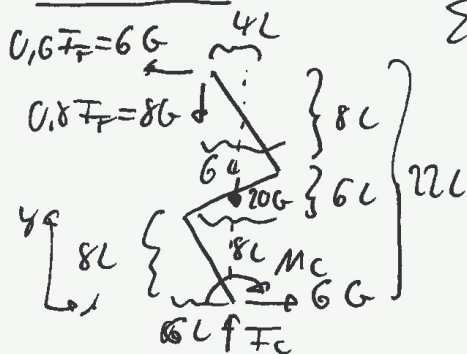 4L
Σ
0,6 F_F = 6 G
0,8 F_F = 8G
8L
6L
20G
6L
22L
y
8L
8L
M_C
x
6 G
6L
F_C